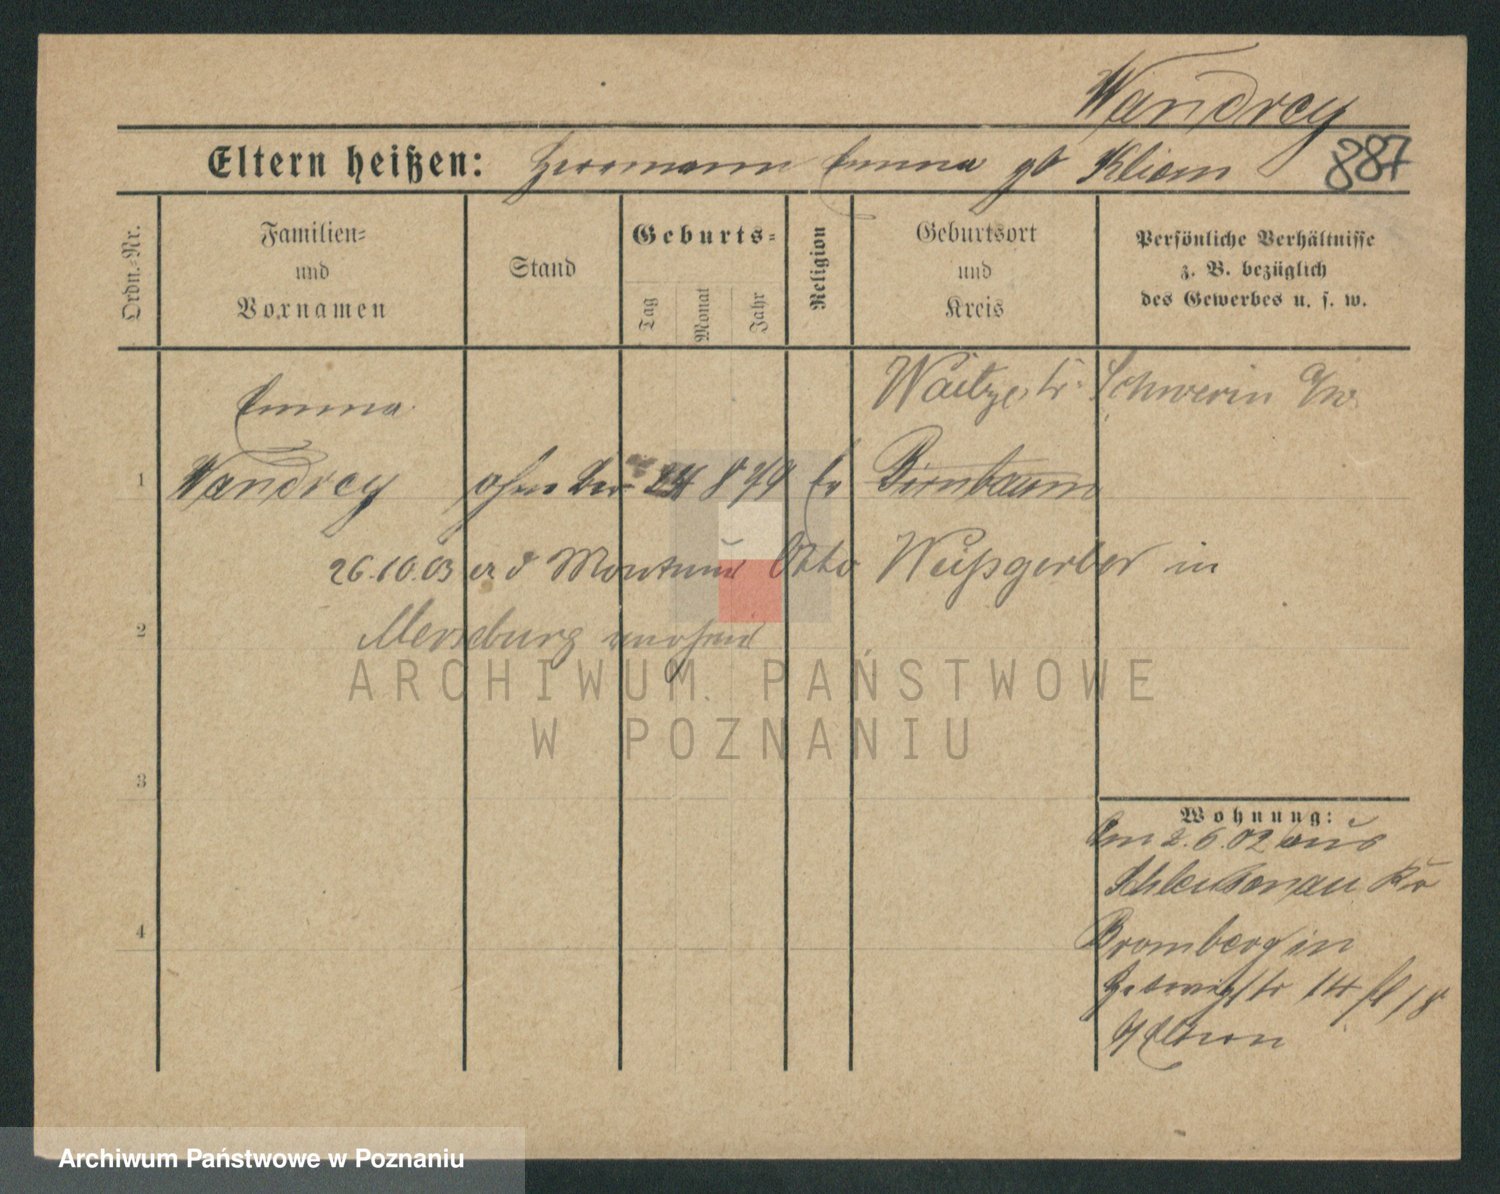 Wandrey
Eltern heißen: Herrmann Emma gb Kliem 887
Ordn.-Nr.
Familien-
und
Vornamen
Stand
Geburts-
Tag
Monat
Jahr
Religion
Geburtsort
und
Kreis
Persönliche Verhältnisse
z. B. bezüglich
des Gewerbes u. s. w.
Emma Schwerin a/W.
1 Wandrey ohne 24 8 79 Ev Birnbaum
26.10.03 Otto Weißgerber in
2 Merseburg
ARCHIWUM PAŃSTWOWE
W POZNANIU
3
Wohnung:
2.6.02 aus
Schleusenau Kr
4 Bromberg in
14
b/ Eltern
Archiwum Państwowe w Poznaniu